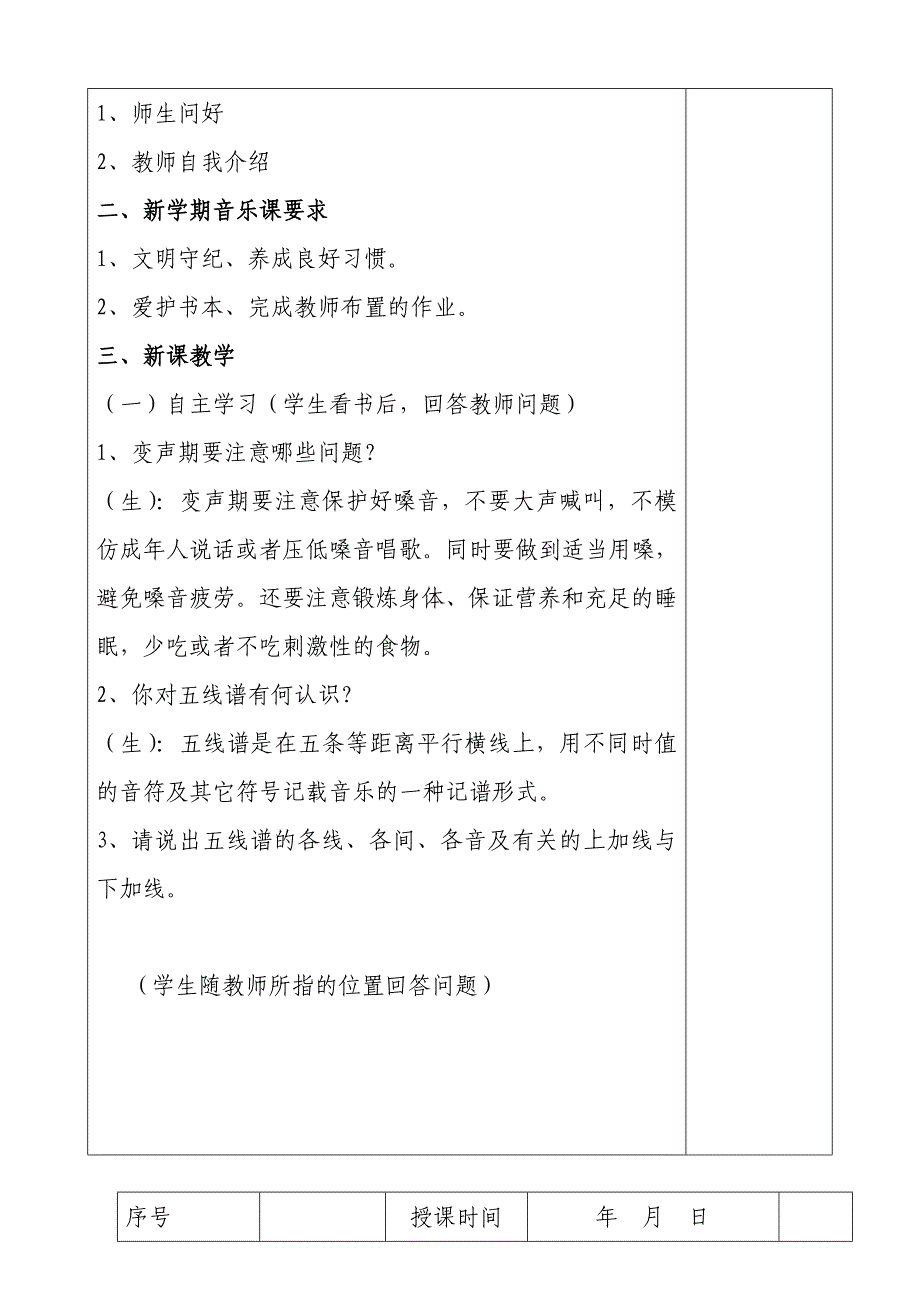 1、师生问好
2、教师自我介绍
二、新学期音乐课要求
1、文明守纪、养成良好习惯。
2、爱护书本、完成教师布置的作业。
三、新课教学
（一）自主学习（学生看书后，回答教师问题）
1、变声期要注意哪些问题？
（生）：变声期要注意保护好嗓音，不要大声喊叫，不模
仿成年人说话或者压低嗓音唱歌。同时要做到适当用嗓，
避免嗓音疲劳。还要注意锻炼身体、保证营养和充足的睡
眠，少吃或者不吃刺激性的食物。
2、你对五线谱有何认识？
（生）：五线谱是在五条等距离平行横线上，用不同时值
的音符及其它符号记载音乐的一种记谱形式。
3、请说出五线谱的各线、各间、各音及有关的上加线与
下加线。
（学生随教师所指的位置回答问题）
序号 授课时间 年 月 日